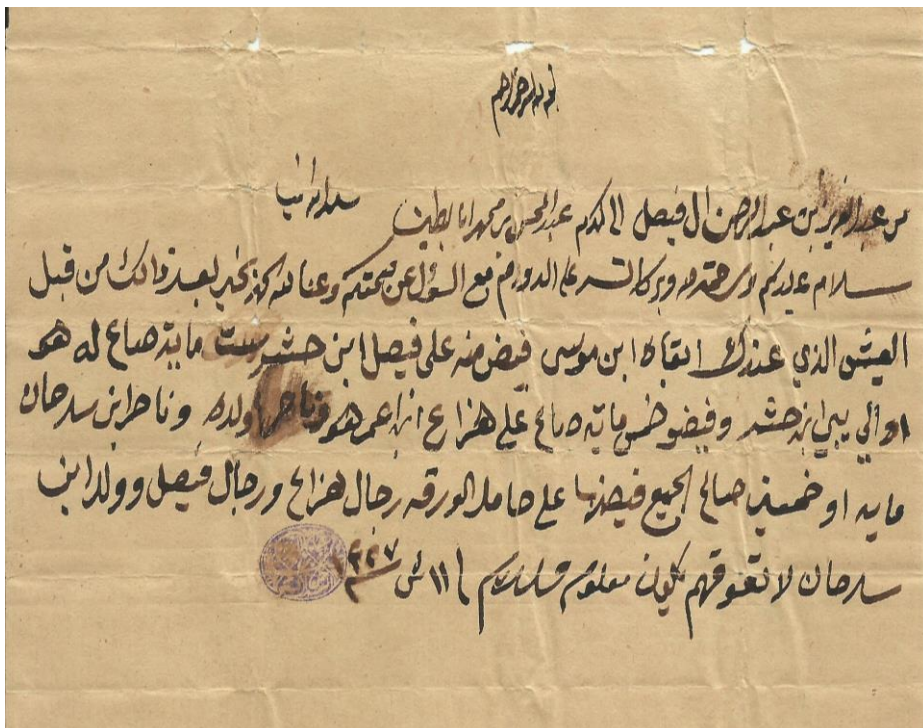 بسم الله الرحمن الرحيم
من عبد العزيز بن عبد الرحمن ال فيصل الى المكرم عبد المحسن بن محمد ابا بطين سلمه الله
سلام عليكم ورحمة الله وبركاته على الدوام مع السؤال عن صحتكم وعنا لله الحمد بخير بعد ذالك من قبل
العيش الذي عندك ابقاه ابن موسى فيض منه على فيصل ابن حشر ست مايه صاع له هو
والي يبي ابن حشر وفيضو خمس مايه صاع على هزاع ابن عمر هو وناصر اولده وناصر ابن سرحان
مايه او خمسين صاع الجميع فيضها على حامل الورقه رجال هزاع ورجال فيصل وولد ابن
سرحان لا تعوقهم يكون معلوم والسلام ١١ ش ١٣٢٧